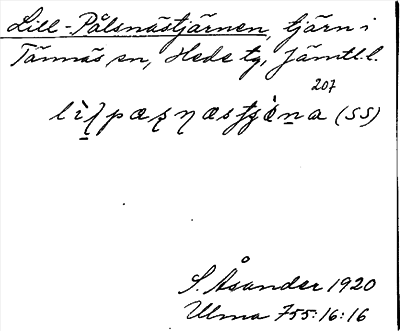 Lill-Pålsnästjärnen, tjärn i
Tännäs sn, Hede tg, Jämtl. l.
207
(SS)
S. Åsander 1920
Ulma 755:16:16